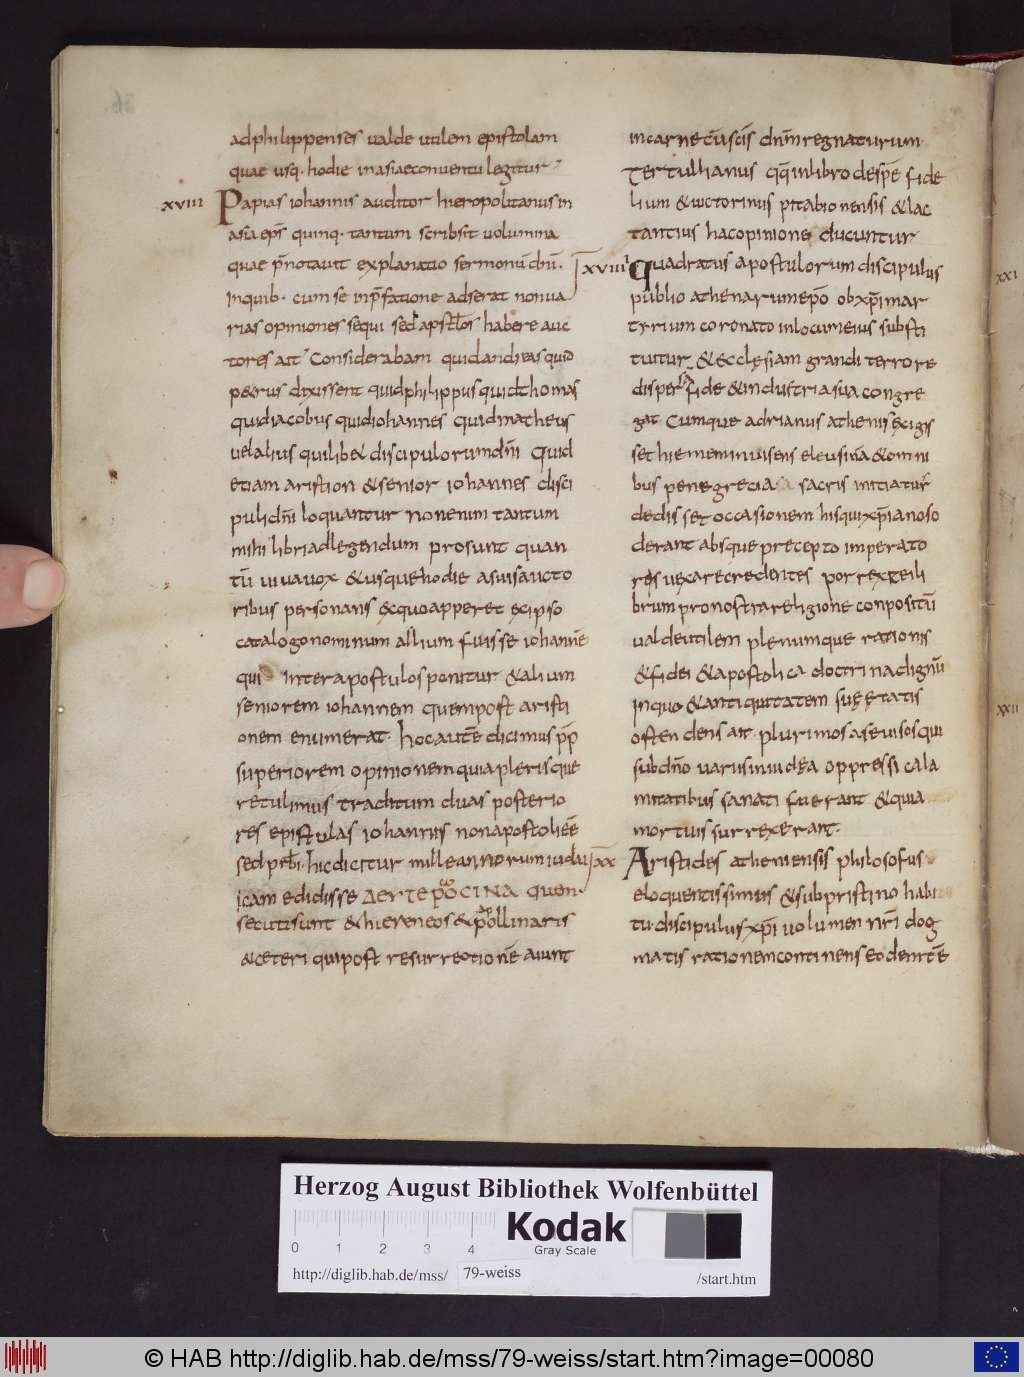 adphilippenses valde utilem epistolam
quae usq· hodie inasiaeconventu legitur
xviii Papias iohannis auditor hieropolitanus in
asia ep̄s quinq· tantum scribsit volumina
quae p̄notavit explanatio sermonū dn̄i·
Inquib· cum se inp̄fatione adserat nonva
rias opiniones sequi sed apst̄los habere auc
tores ait Considerabam quidandreas quid
petrus dixissent quidphilippus quidthomas
quidiacobus quidiohannes quidmatheus
vel alius quilibet discipulorumdn̄i Quid
etiam aristion &senior iohannes disci
pulidn̄i loquantur Nonenim tantum
mihi libriadlegendum prosunt quan
tū vivavox &usquehodie asuisaucto
ribus personans exquoapperet exipso
catalogonominum allium fuisse iohannē
qui interapostulosponitur &alium
seniorem iohannem quempost aristi
onem enumerat· hocautē dicimus pp̄
superiorem opinionemquiaplerisque
retulimus traditum duas posterio
res epistulas iohannis nonapostoli eē
sed prb̄i· hicdicitur milleannorumiudai
icam edidisse ΔΕΥΤΕΡΩCΙΝΑ quem·
secutisunt &hiereneos &apollinaris
&ceteri quipost resurrectionē aiunt
incarnecūscis dn̄mregnaturum·
Tertullianus qq̄inlibro despē fide
lium &victorinus pitabionensis &lac
tantius hacopinione ducuntur
xviiii Quadratus apostulorum discipulus
publio athenarumepō obxp̄imar
tyrium coronato inlocumeius substi
tuitur &ecclesiam grandi terrore
dispersā fide &industria sua congre
gat Cumque adrianus athenis exigis
set hiemem invisens eleusina &omni
bus penegrecia sacris initiatur
dedisset occasionem hisquixp̄ianoso
derant absque precepto imperato
res vexarecredentes porrexgeili
brumpronostrareligione conpositū
valdeutilem plenumque rationis
&fidei &apostolica doctrinadignū
Inquo &antiquitatem suę ętatis
ostendens ait plurimosasevisosqui
subdn̄o variisiniudea oppressi cala
mitatibus sanati fuerant &quia
mortuis surrexerant·
xx Aristides atheniensis philosofus
eloquentissimus &subpristino habi
tu· discipulusxp̄i volumen nr̄i dog
matis rationemcontinens eodemtē
xxi
xxii
Herzog August Bibliothek Wolfenbüttel
0 1 2 3 4
Kodak
Gray Scale
http://diglib.hab.de/mss/ 79-weiss /start.htm
© HAB http://diglib.hab.de/mss/79-weiss/start.htm?image=00080